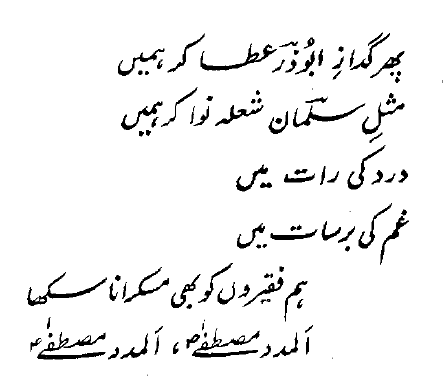 پھر گدازِ ابُوذرؓ عطا کر ہمیں
مثلِ سلمانؓ شعلہ نوا کر ہمیں
درد کی رات میں
غم کی برسات میں
ہم فقیروں کو بھی مسکرانا سکھا
اَلمدد مصطفےٰؐ، اَلمدد مصطفےٰؐ